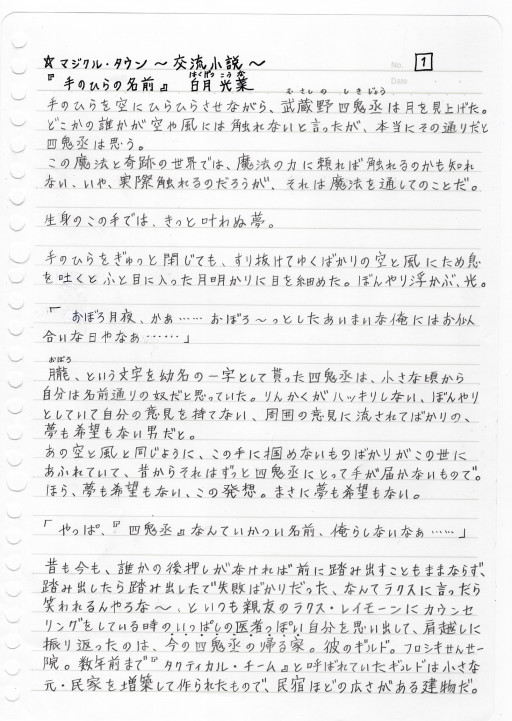 ☆マジクル・タウン 〜交流小説〜
No. 1
Date
『手のひらの名前』 白月 光菜
はくげつ こうな
むさしの しきじょう
手のひらを空にひらひらさせながら、武蔵野四鬼丞は月を見上げた。
どこかの誰かが空や風には触れないと言ったが、本当にその通りだと
四鬼丞は思う。
この魔法と奇跡の世界では、魔法の力に頼れば触れるのかも知れ
ない、いや、実際触れるのだろうが、それは魔法を通してのことだ。
生身のこの手では、きっと叶わぬ夢。
手のひらをぎゅっと閉じても、すり抜けてゆくばかりの空と風にため息
を吐くとふと目に入った月明かりに目を細めた。ぼんやり浮かぶ、光。
「おぼろ月夜、かぁ……おぼろ〜っとしたあいまいな俺にはお似
合いな日やなぁ……」
おぼろ
朧、という文字を幼名の一字として貰った四鬼丞は、小さな頃から
自分は名前通りの奴だと思っていた。りんかくがハッキリしない、ぼんやり
としていて自分の意見を持てない、周囲の意見に流されてばかりの、
夢も希望もない男だと。
あの空と風と同じように、この手に掴めないものばかりがこの世に
あふれていて、昔からそれはずっと四鬼丞にとって手が届かないもので。
ほら、夢も希望もない、この発想。まさに夢も希望もない。
「やっぱ、『四鬼丞』なんていかつい名前、俺らしないなぁ……」
昔も今も、誰かの後押しがなければ前に踏み出すこともままならず、
踏み出したら踏み出したで失敗ばかりだった、なんてラクスに言ったら
笑われるんやろな〜、といつも親友のラクス・レイモーンにカウンセ
リングをしている時のいっぱしの医者っぽい自分を思い出して、肩越しに
振り返ったのは、今の四鬼丞の帰る家。彼のギルド。フロシキせんせー
院。数年前まで『タクティカル・チーム』と呼ばれていたギルドは小さな
元・民家を増築して作られたもので、民宿ほどの広さがある建物だ。